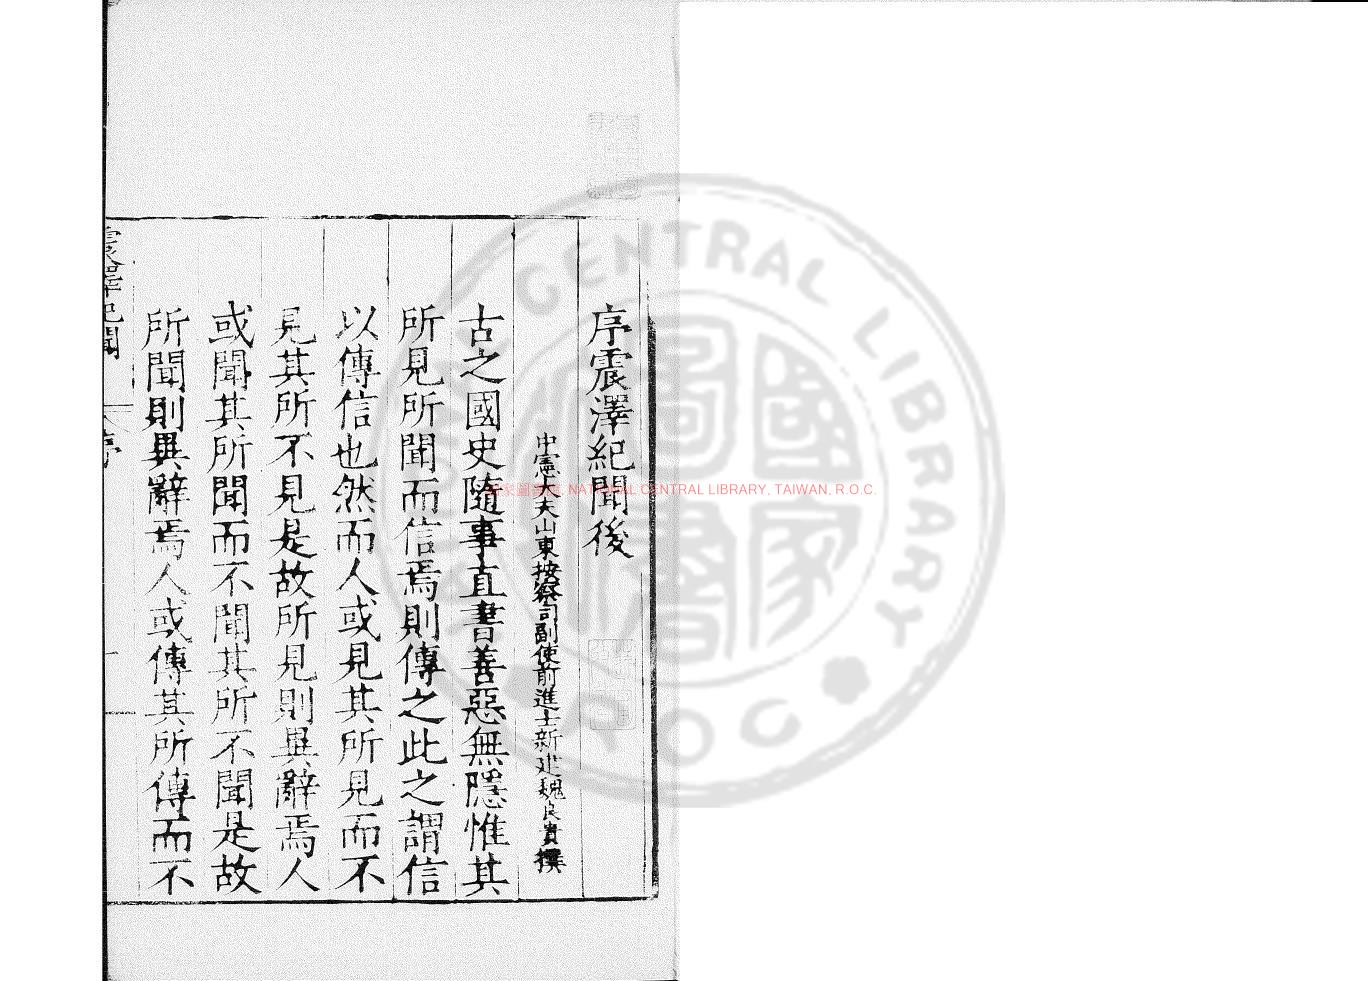 序震澤紀聞後
中憲大夫山東按察司副使前進士新建魏良貴撰
古之國史隨事直書善惡無隱惟其
所見所聞而信焉則傳之此之謂信
以傳信也然而人或見其所見而不
見其所不見是故所見則異辭焉人
或聞其所聞而不聞其所不聞是故
所聞則異辭焉人或傳其所傳而不
震澤紀聞
序
一
國家圖書館, NATIONAL CENTRAL LIBRARY, TAIWAN, R.O.C.
CENTRAL LIBRARY R.O.C